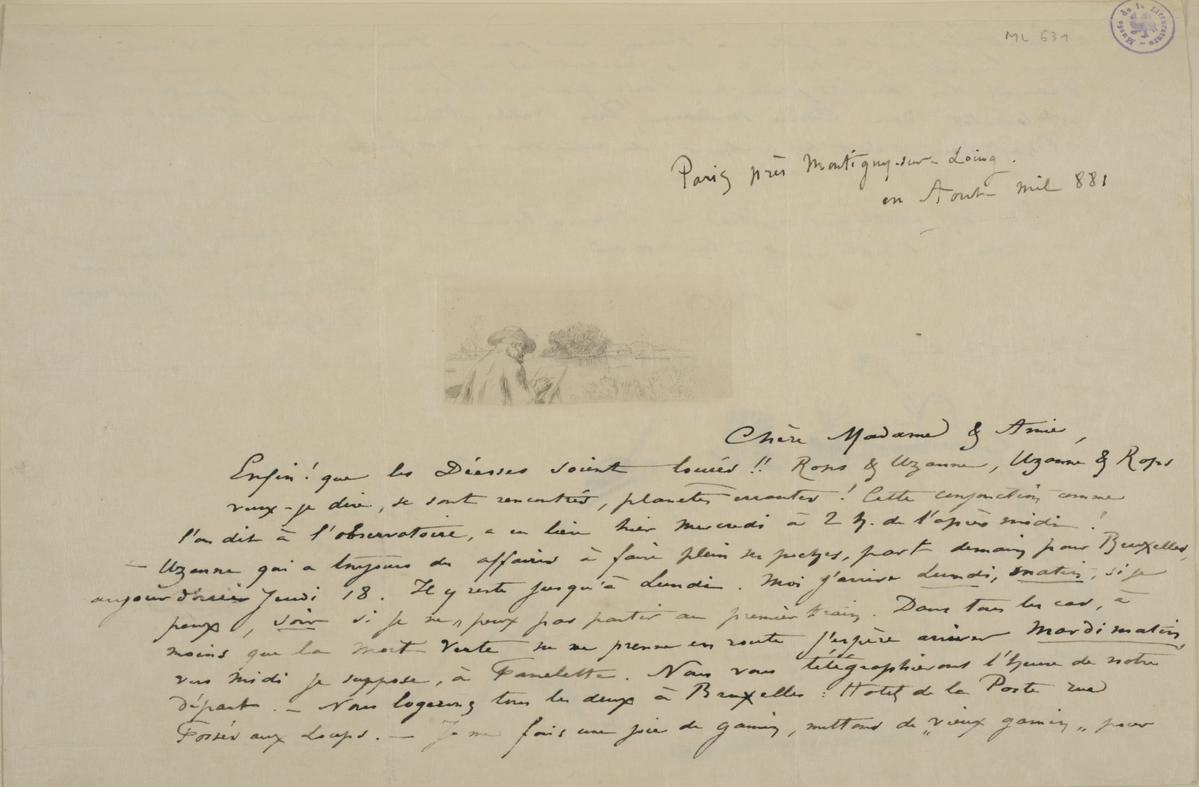 ML 631
Musée de la Littérature
Paris près Montigny-sur-Loing.
en Aout mil 881
Chère Madame & Amie,
Enfin! que les Déesses soient louées!! Rops & Uzanne, Uzanne & Rops
veux-je dire, se sont rencontrés, planètes errantes! Cette conjonction comme
l'on dit à l'observatoire, a eu lieu hier mercredi à 2 h. de l'après midi!
– Uzanne qui a toujours des affaires à faire plein ses poches, part demain pour Bruxelles,
aujourd'hui Jeudi 18. Il y reste jusqu'à Lundi. Moi j'arrive Lundi, matin, si je
peux, soir si je ne peux pas partir au premier train. Dans tous les cas, à
moins que la mort verte ne me prenne en route j'espère arriver Mardi matin,
vers midi je suppose, à Famelette. Nous vous télégraphierons l'heure de notre
départ. – Nous logerons tous les deux à Bruxelles: Hotel de la Poste rue
Fossés aux Loups. – Je me fais une joie de gamin, mettons de „vieux gamin„ pour